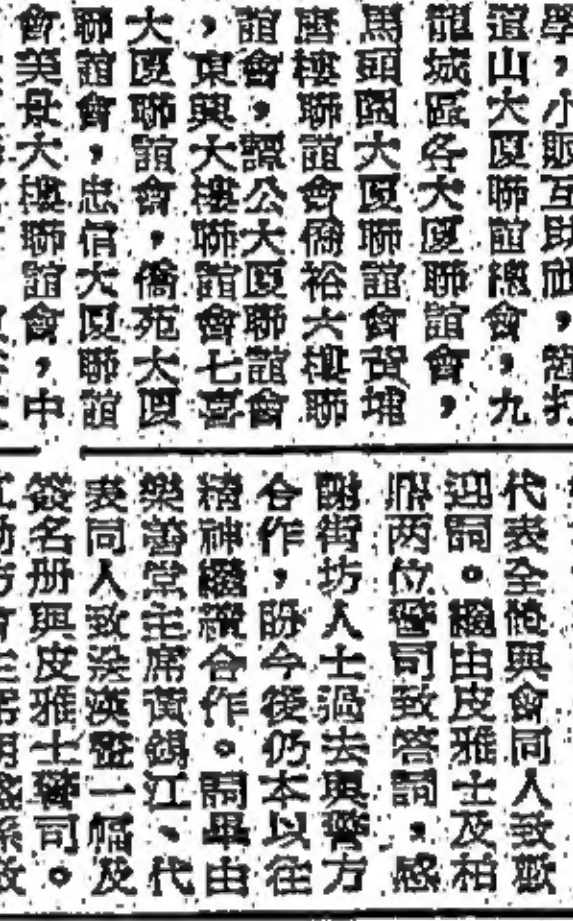 學,小販互助社,
道山大廈聯誼總會,九
龍城區各大廈聯誼會,
馬頭圍大廈聯誼會
唐樓聯誼會僑裕大樓聯
誼會,譚公大廈聯誼會
,東興大樓聯誼會七喜
大廈聯誼會,僑苑大廈
聯誼會,忠信大廈聯誼
會美景大樓聯誼會,中
代表全體與會同人致歡
迎詞。繼由皮雅士及柏
鼎两位警司致答詞,感
謝街坊人士過去與警方
合作,盼今後仍本以往
精神繼續合作。詞畢由
樂善堂主席黃錫江、代
表同人致送漢璽一幅及
簽名册與皮雅士警司。